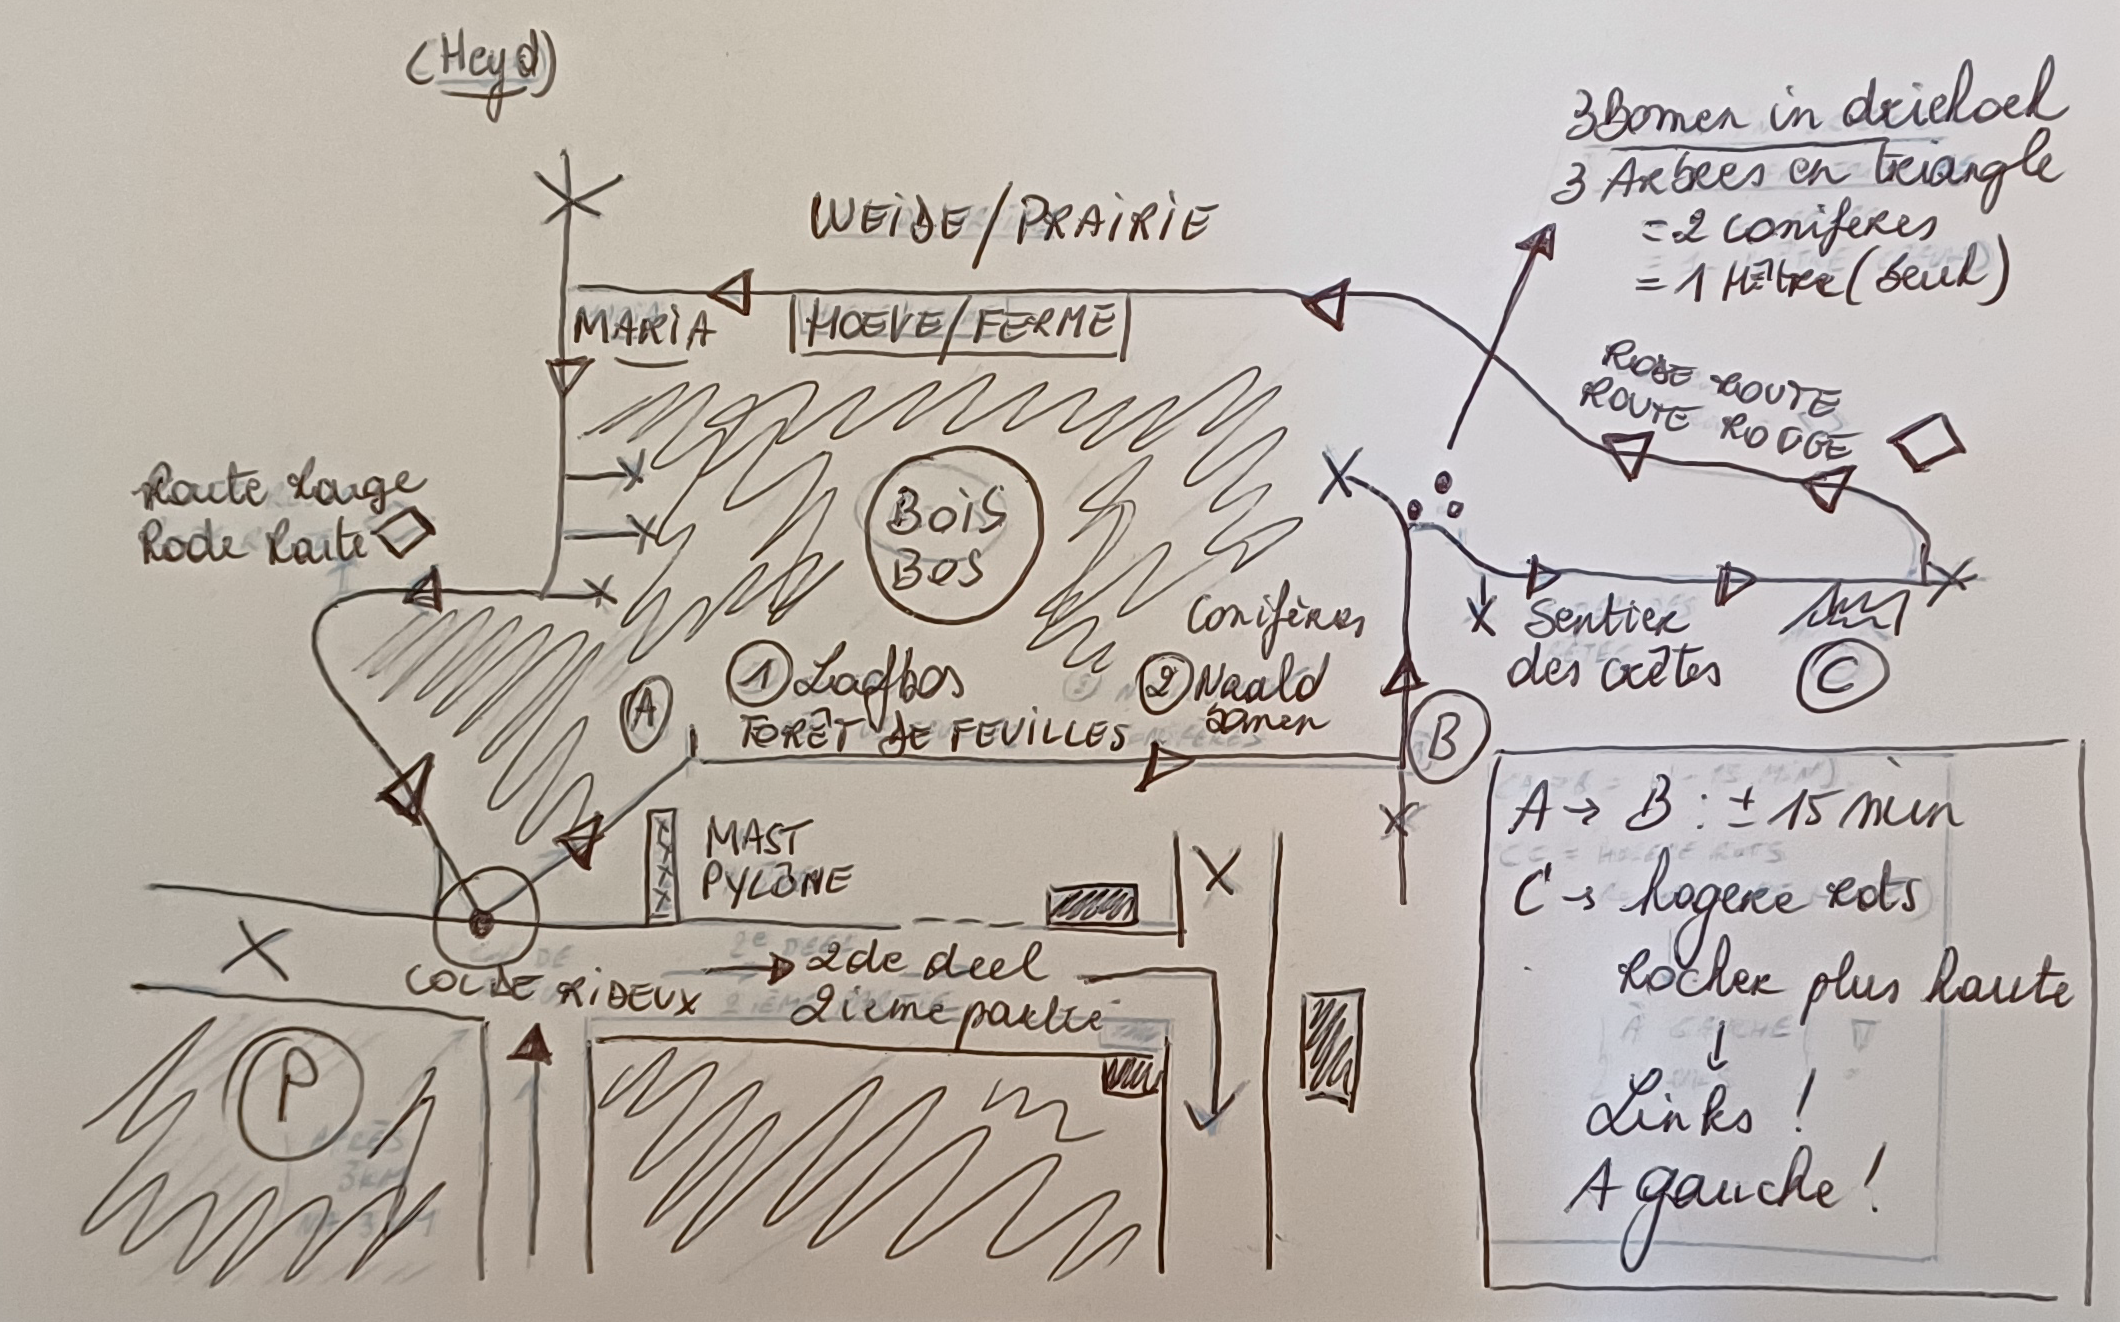 (Heyd)
3 Bomen in driehoek
3 Arbres en triangle
= 2 conifères
= 1 Hêtre (beuk)
WEIDE/PRAIRIE
MARIA
HOEVE/FERME
RODE ROUTE
ROUTE ROUGE
Route Rouge
Rode Route
BOIS
BOS
X
Conifères
A
1 Loofbos
FORÊT DE FEUILLES
2 Naald
bomen
B
Sentier
des crêtes
C
MAST
PYLÔNE
X
X
COL DE RIDEUX
2de deel
2ième partie
P
A → B : ± 15 min
C → hogere rots
Rocher plus haute
↓
Links !
A gauche !